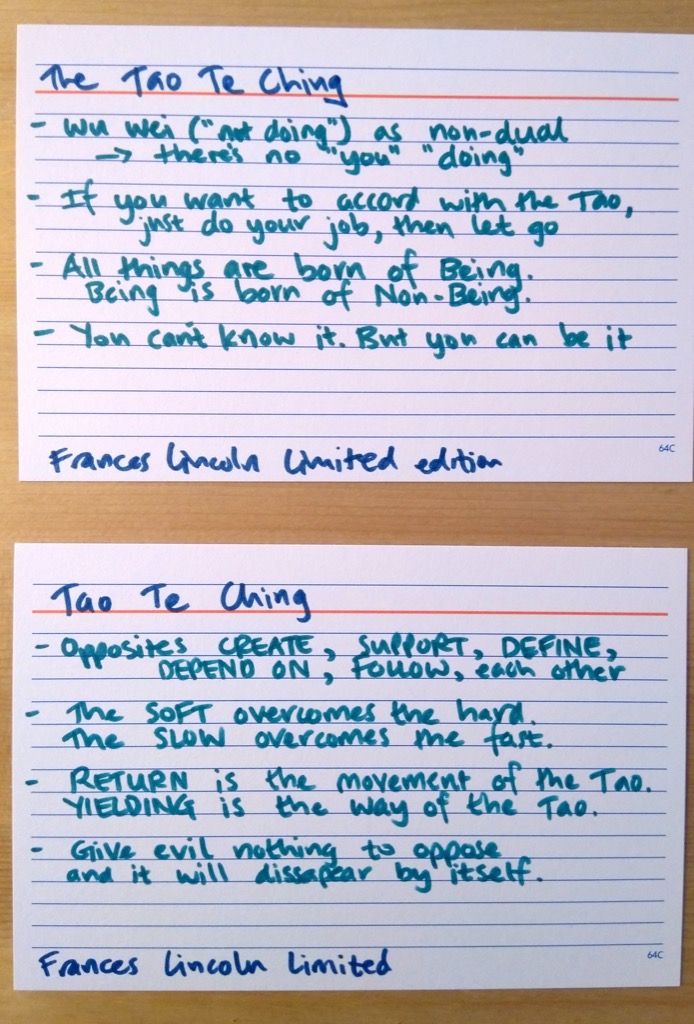 The Tao Te Ching
- Wu wei ("not doing") as non-dual
→ there's no "you" "doing"
- If you want to accord with the Tao,
just do your job, then let go
- All things are born of Being.
Being is born of Non-Being.
- You can't know it. But you can be it
64C
Frances Lincoln Limited edition
Tao Te Ching
- Opposites CREATE, SUPPORT, DEFINE,
DEPEND ON, FOLLOW, each other
- The SOFT overcomes the hard.
The SLOW overcomes the fast.
- RETURN is the movement of the Tao.
YIELDING is the way of the Tao.
- Give evil nothing to oppose
and it will dissapear by itself.
64C
Frances Lincoln Limited